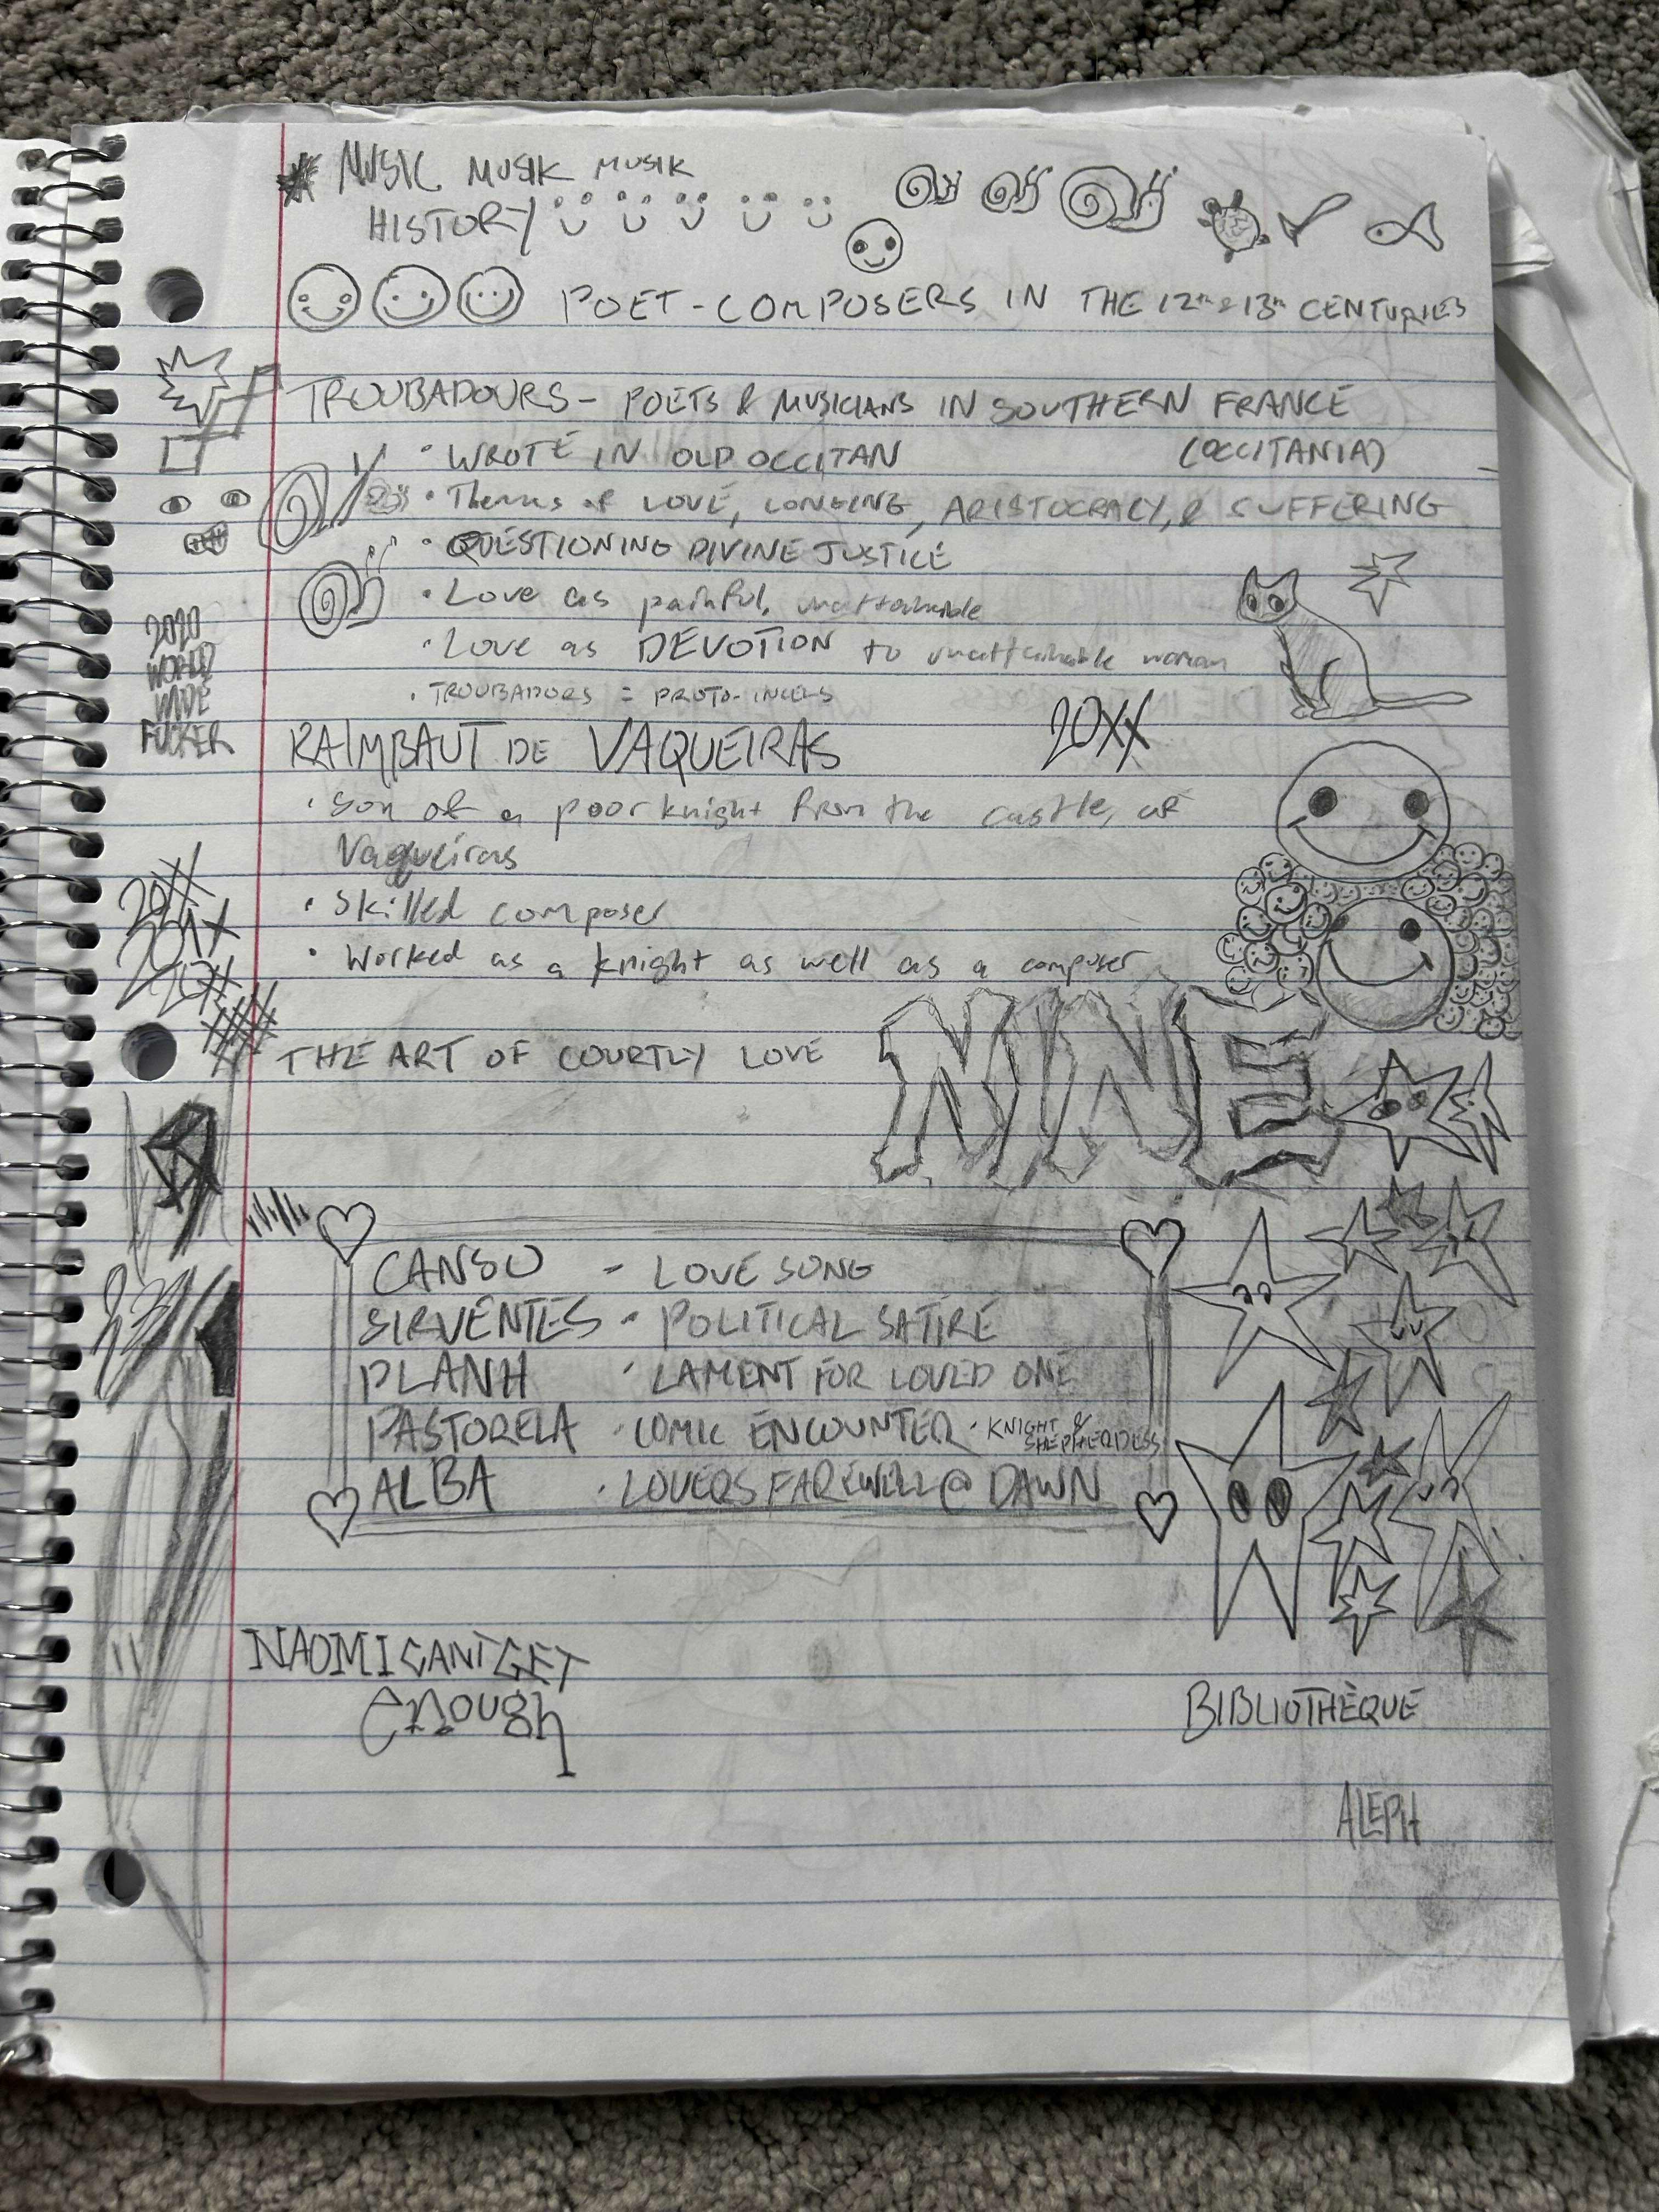 MUSIC MUSIK MUSIK
HISTORY
POET-COMPOSERS IN THE 12th & 13th CENTURIES
TROUBADOURS - POETS & MUSICIANS IN SOUTHERN FRANCE
(OCCITANIA)
• WROTE IN OLD OCCITAN
• Themes of LOVE, LONGING, ARISTOCRACY, & SUFFERING
• QUESTIONING DIVINE JUSTICE
• Love as painful, unattainable
• Love as DEVOTION to unattainable woman
• TROUBADORS = PROTO-INCELS
2020
WORLD
WIDE
FUCKER
RAIMBAUT DE VAQUEIRAS
20XX
• Son of a poor knight from the castle, of
Vaqueiras
• Skilled composer
• Worked as a knight as well as a composer
THE ART OF COURTLY LOVE
NINE
CANSO - LOVE SONG
SIRVENTES - POLITICAL SATIRE
PLANH - LAMENT FOR LOVED ONE
PASTORELA - COMIC ENCOUNTER - KNIGHT &
SHEPHERDESS
ALBA - LOVERS FAREWELL @ DAWN
NAOMI CANT GET
enough
BIBLIOTHÈQUE
ALEPH